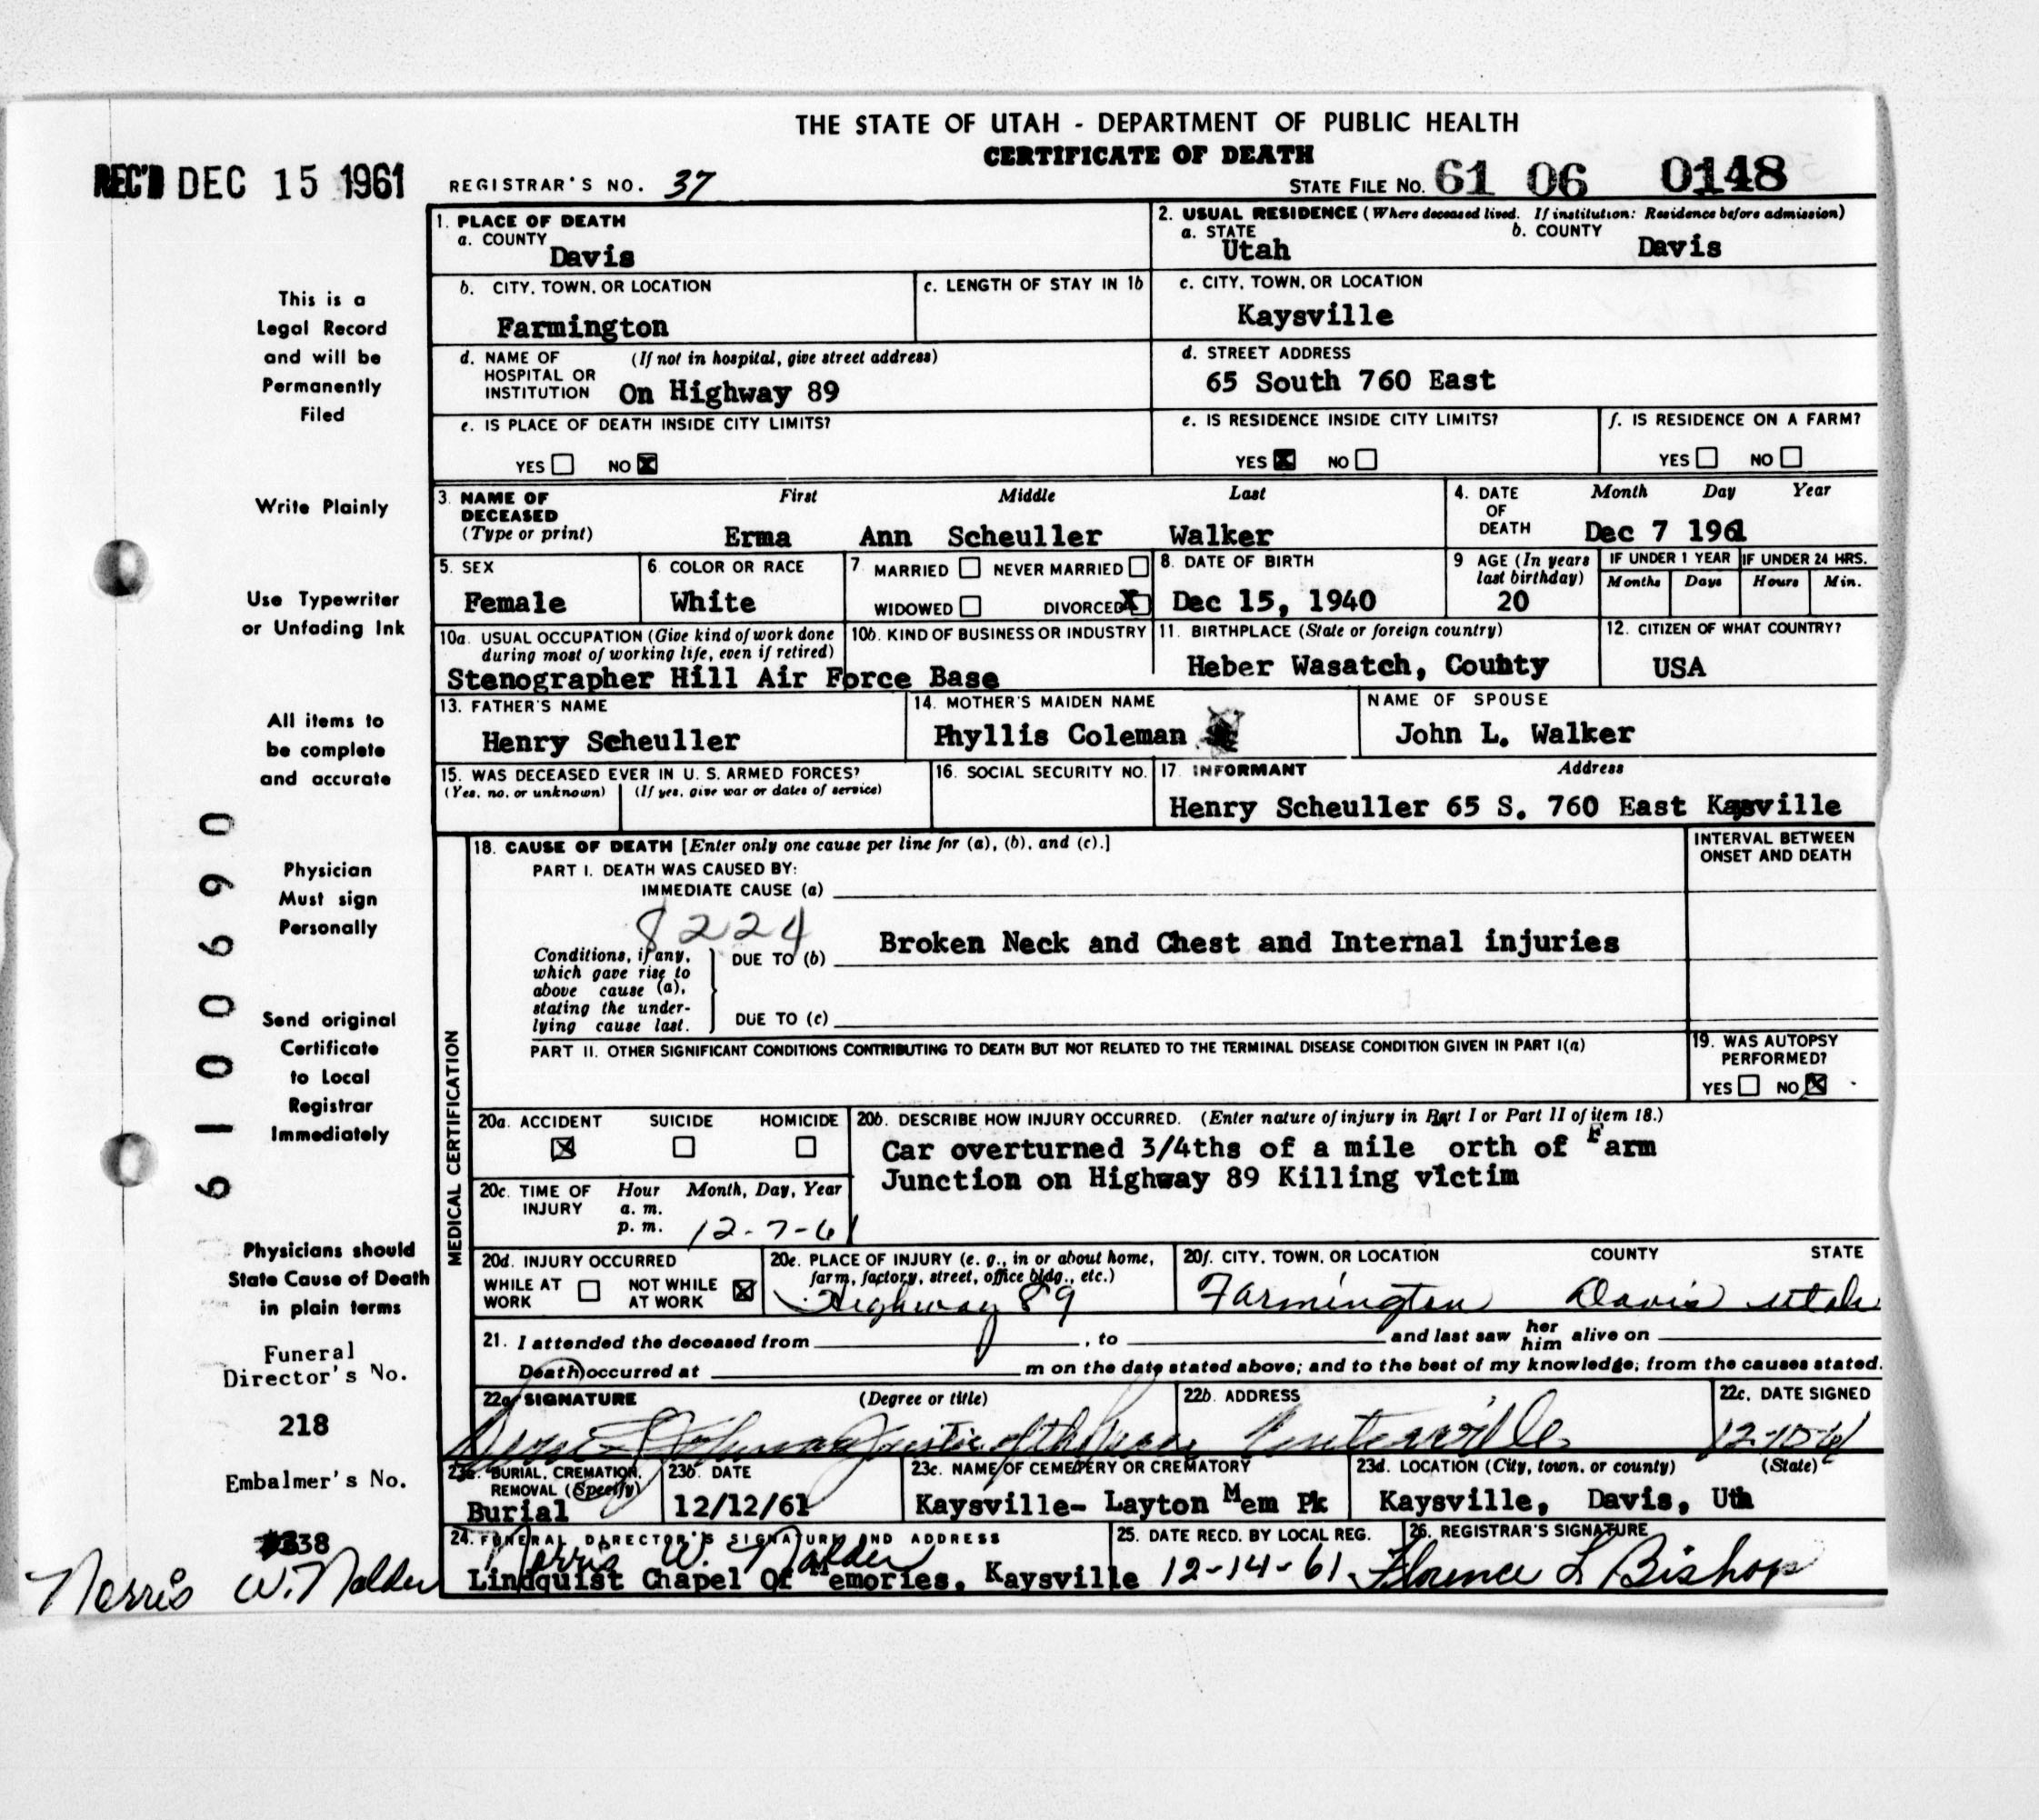 THE STATE OF UTAH - DEPARTMENT OF PUBLIC HEALTH
CERTIFICATE OF DEATH
REC'D DEC 15 1961
REGISTRAR'S NO. 37
STATE FILE NO. 61 06 0148
1. PLACE OF DEATH
a. COUNTY
Davis
2. USUAL RESIDENCE (Where deceased lived. If institution: Residence before admission)
a. STATE b. COUNTY
Utah Davis
b. CITY, TOWN, OR LOCATION
Farmington
c. LENGTH OF STAY IN 1b
c. CITY, TOWN, OR LOCATION
Kaysville
d. NAME OF (If not in hospital, give street address)
HOSPITAL OR
INSTITUTION On Highway 89
d. STREET ADDRESS
65 South 760 East
e. IS PLACE OF DEATH INSIDE CITY LIMITS?
YES NO X
e. IS RESIDENCE INSIDE CITY LIMITS?
YES X NO
f. IS RESIDENCE ON A FARM?
YES NO
3. NAME OF First Middle Last
DECEASED
(Type or print) Erma Ann Scheuller Walker
4. DATE Month Day Year
OF
DEATH Dec 7 1961
5. SEX
Female
6. COLOR OR RACE
White
7. MARRIED NEVER MARRIED
WIDOWED DIVORCED X
8. DATE OF BIRTH
Dec 15, 1940
9 AGE (In years
last birthday)
20
IF UNDER 1 YEAR
Months Days
IF UNDER 24 HRS.
Hours Min.
10a. USUAL OCCUPATION (Give kind of work done
during most of working life, even if retired)
10b. KIND OF BUSINESS OR INDUSTRY
Stenographer Hill Air Force Base
11. BIRTHPLACE (State or foreign country)
Heber Wasatch, Couhty
12. CITIZEN OF WHAT COUNTRY?
USA
13. FATHER'S NAME
Henry Scheuller
14. MOTHER'S MAIDEN NAME
Phyllis Coleman
NAME OF SPOUSE
John L. Walker
15. WAS DECEASED EVER IN U. S. ARMED FORCES?
(Yes, no, or unknown) (If yes, give war or dates of service)
16. SOCIAL SECURITY NO.
17. INFORMANT Address
Henry Scheuller 65 S. 760 East Kaysville
MEDICAL CERTIFICATION
18. CAUSE OF DEATH [Enter only one cause per line for (a), (b), and (c).]
INTERVAL BETWEEN
ONSET AND DEATH
PART I. DEATH WAS CAUSED BY:
IMMEDIATE CAUSE (a)
8224
Broken Neck and Chest and Internal injuries
Conditions, if any,
which gave rise to
above cause (a),
stating the under-
lying cause last.
DUE TO (b)
DUE TO (c)
PART II. OTHER SIGNIFICANT CONDITIONS CONTRIBUTING TO DEATH BUT NOT RELATED TO THE TERMINAL DISEASE CONDITION GIVEN IN PART I(a)
19. WAS AUTOPSY
PERFORMED?
YES NO X
20a. ACCIDENT SUICIDE HOMICIDE
X
20b. DESCRIBE HOW INJURY OCCURRED. (Enter nature of injury in Part I or Part II of item 18.)
Car overturned 3/4ths of a mile orth of Farm
Junction on Highway 89 Killing victim
20c. TIME OF Hour Month, Day, Year
INJURY a. m.
p. m. 12-7-61
20d. INJURY OCCURRED
WHILE AT NOT WHILE X
WORK AT WORK
20e. PLACE OF INJURY (e. g., in or about home,
farm, factory, street, office bldg., etc.)
Highway 89
20f. CITY, TOWN, OR LOCATION COUNTY STATE
Farmington Davis Utah
21. I attended the deceased from , to and last saw her him alive on
Death occurred at m on the date stated above; and to the best of my knowledge, from the causes stated.
22a. SIGNATURE (Degree or title)
Justice of the Peace
22b. ADDRESS
Centerville
22c. DATE SIGNED
23a. BURIAL, CREMATION,
REMOVAL (Specify)
Burial
23b. DATE
12/12/61
23c. NAME OF CEMETERY OR CREMATORY
Kaysville- Layton Mem Pk
23d. LOCATION (City, town, or county) (State)
Kaysville, Davis, Uth
24. FUNERAL DIRECTOR'S SIGNATURE AND ADDRESS
Norris W. Nalder
Lindquist Chapel Of Memories, Kaysville
25. DATE RECD. BY LOCAL REG.
12-14-61
26. REGISTRAR'S SIGNATURE
Florence L Bishop
This is a
Legal Record
and will be
Permanently
Filed
Write Plainly
Use Typewriter
or Unfading Ink
All items to
be complete
and accurate
Physician
Must sign
Personally
Send original
Certificate
to Local
Registrar
Immediately
Physicians should
State Cause of Death
in plain terms
Funeral
Director's No.
218
Embalmer's No.
338
Norris W. Nalder
6100690